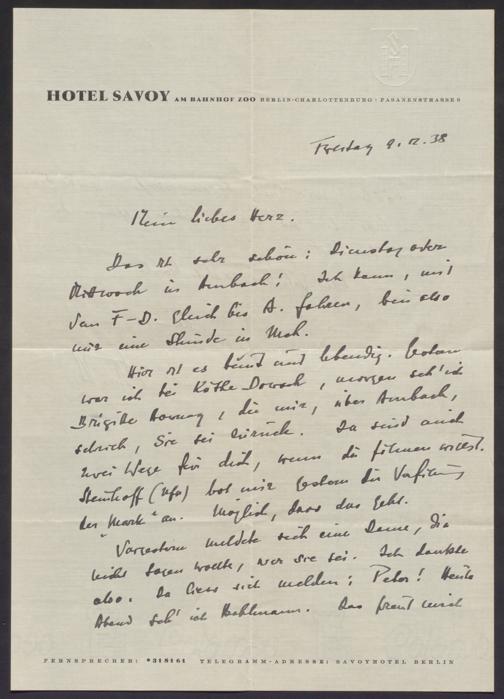 HOTEL SAVOY AM BAHNHOF ZOO BERLIN-CHARLOTTENBURG · FASANENSTRASSE 9
Freitag 9. 12. 38
Mein liebes Herz.
Das ist sehr schön: Dienstag oder
Mittwoch in Ambach! Ich kann, mit
dem F-D. gleich bis A. fahren, bin also
nur eine Stunde in Mch.
Hier ist es bunt und lebendig. Gestern
war ich bei Käthe Dorsch, morgen seh' ich
Brigitte Horney, die mir, über Ambach,
schrieb, Sie sei zurück. Da sind auch
zwei Wege für dich, wenn du filmen willst.
Steinhoff (Ufa) bot mir gestern die Verfilmung
der "Mark" an. Möglich, dass das geht.
Vorgestern meldete sich eine Dame, die
nicht sagen wollte, wer sie sei. Ich dankte
also. Da liess sich melden: Peter! Heute
Abend seh' ich . Das freut mich
FERNSPRECHER: *318161 TELEGRAMM-ADRESSE: SAVOYHOTEL BERLIN